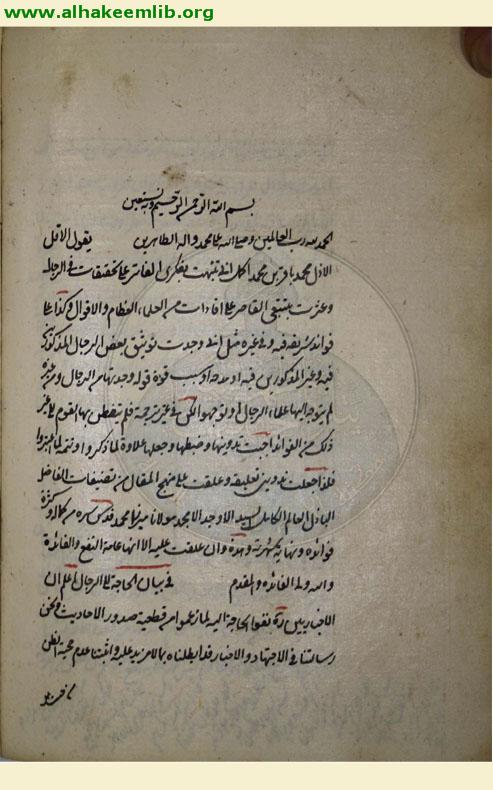 www.alhakeemlib.org
بسم الله الرحمن الرحيم وبه نستعين
الحمد لله رب العالمين وصلى الله على محمد واله الطاهرين يقول الاقل
الاذل محمد باقر بن محمد اكمل انى تنبهت بفكرى الفاتر على تحقيقات في الرجال
وعثرت بتتبعى القاصر على افادات من العلماء العظام والاقوال وكذا على
فوائد شريفة فيه وفي غيره مثل انى وجدت توثيق بعض الرجال المذكورين
فيه وغير المذكورين فيه او مدحه او سبب قوة قوله وجدتها من الرجال ومن غيره
لم يتوجه اليها علماء الرجال او توجهوا لكن في غير ترجمة فلم يتفطن بها القوم الى غير
ذلك من الفوائد احببت تدوينها وضبطها وجعلها علاوة لما ذكروا وتتمة لما اعتبروا
فلذا جعلت تدوينى تعليقة وعلقت على منهج المقال من تصنيفات الفاضل
الباذل العالم الكامل السيد الاوحد الامجد مولانا ميرزا محمد قدس سره من كماله وكثرة
فوائده ونهاية شهرته وهذه وان علقت عليه الا انها عامة النفع والفائدة
في بيان الحاجة الى الرجال اعلم ان
الاخباريين ره نفوا الحاجة اليه لما زعموا من قطعية صدور الاحاديث ونحن
رسالتنا في الاجتهاد والاخبار قد ابطلناه بما لا مزيد عليه واثبتنا عدم حجية الظن